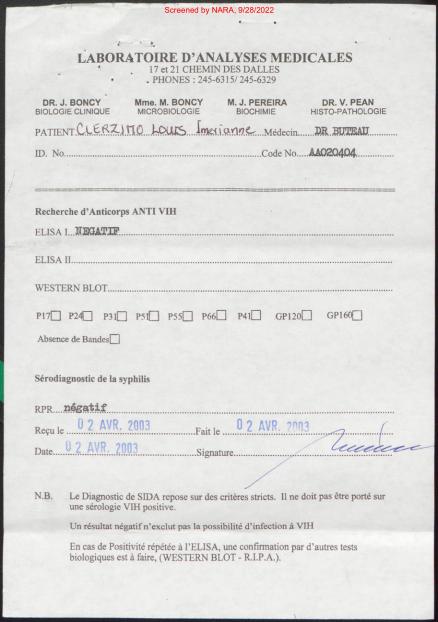 Screened by NARA, 9/28/2022
LABORATOIRE D'ANALYSES MEDICALES
17 et 21 CHEMIN DES DALLES
PHONES : 245-6315/ 245-6329
DR. J. BONCY Mme. M. BONCY M. J. PEREIRA DR. V. PEAN
BIOLOGIE CLINIQUE MICROBIOLOGIE BIOCHIMIE HISTO-PATHOLOGIE
PATIENT CLERZIMO LOUIS Imerianne Médecin DR BUTEAU
ID. No. Code No. AA020404
Recherche d'Anticorps ANTI VIH
ELISA I NEGATIF
ELISA II
WESTERN BLOT
P17 P24 P31 P51 P55 P66 P41 GP120 GP160
Absence de Bandes
Sérodiagnostic de la syphilis
RPR négatif
Reçu le 02 AVR. 2003 Fait le 02 AVR. 2003
Date 02 AVR. 2003 Signature
N.B. Le Diagnostic de SIDA repose sur des critères stricts. Il ne doit pas être porté sur
une sérologie VIH positive.
Un résultat négatif n'exclut pas la possibilité d'infection à VIH
En cas de Positivité répétée à l'ELISA, une confirmation par d'autres tests
biologiques est à faire, (WESTERN BLOT - R.I.P.A.).